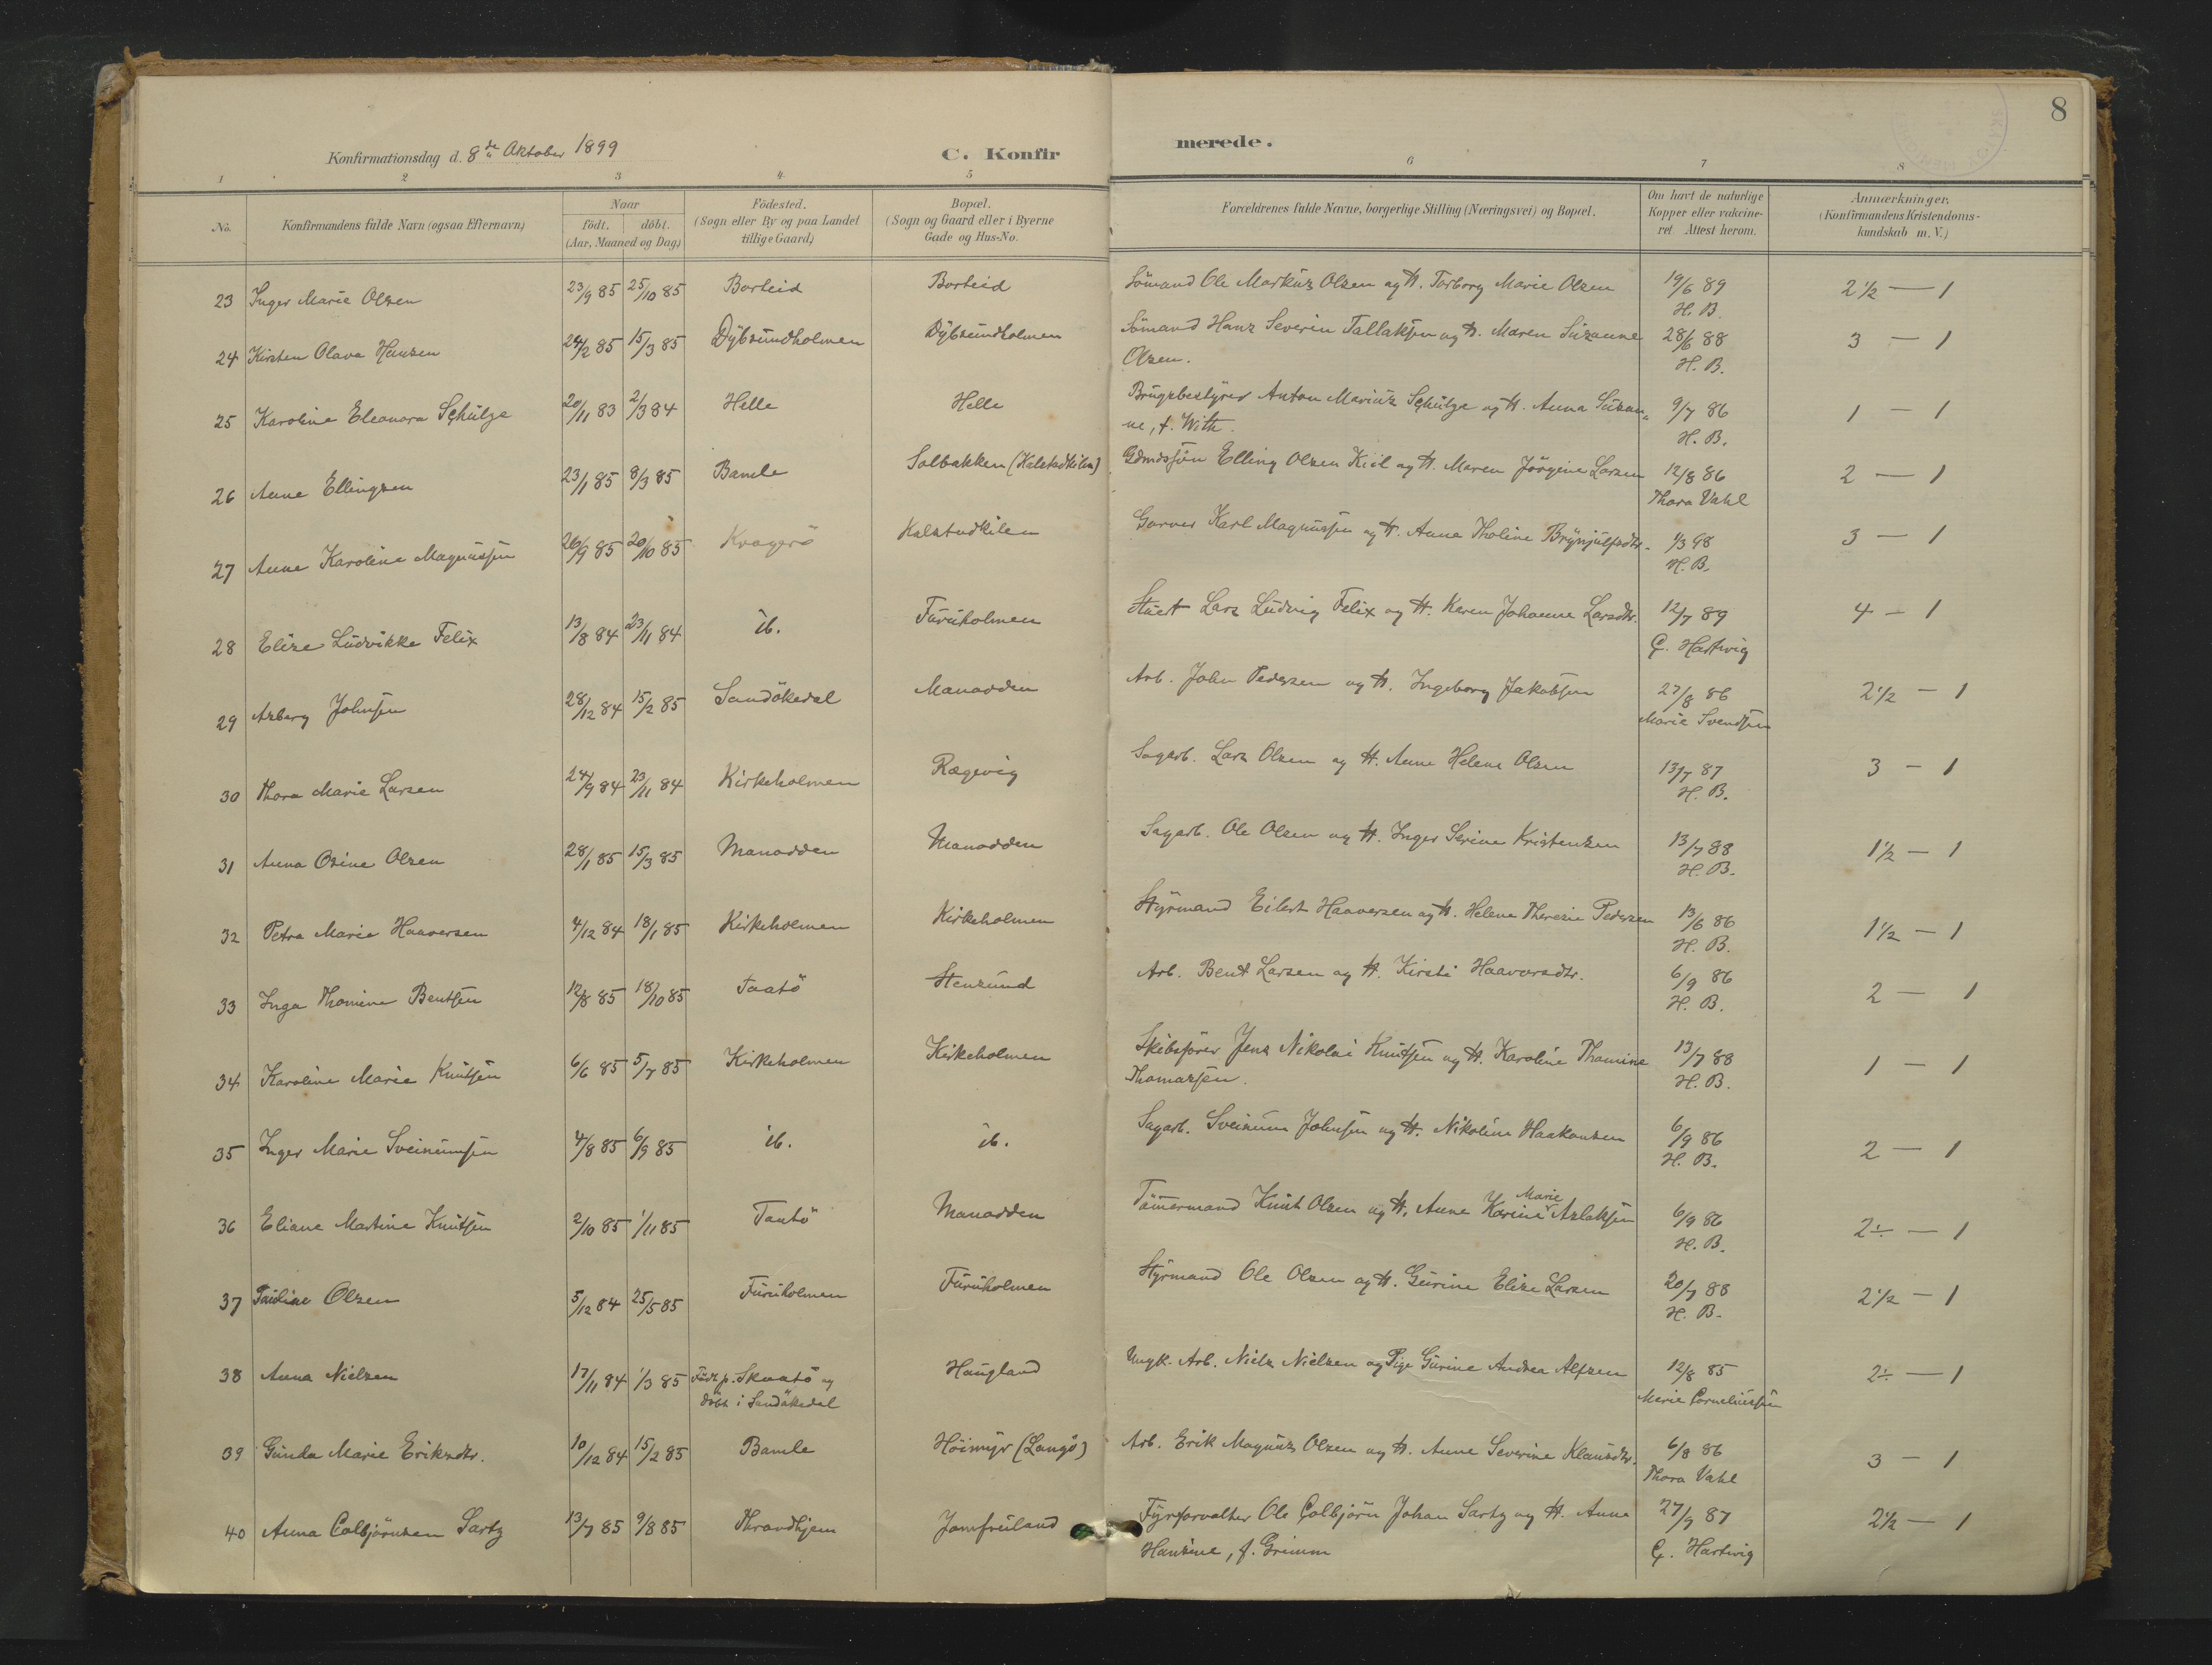 8
Konfirmationsdag d. 8de Oktober 1899
C. Konfirmerede.
1 2 3 4 5 6 7 8
No. Konfirmandens fulde Navn (ogsaa Efternavn) Naar født, døbt. (Aar, Maaned og Dag) Fødested. (Sogn eller By og paa Landet tillige Gaard) Bopæl. (Sogn og Gaard eller i Byerne Gade og Hus-No. Forældrenes fulde Navne, borgerlige Stilling (Næringsvei) og Bopæl. Om havt de naturlige Kopper eller vakcineret Attest herom. Anmærkninger, (Konfirmandens Kristendomskundskab m. V.)
23 Inger Marie Olsen 23/9 85 25/10 85 Borteid Borteid Sømand Ole Markus Olsen og H. Torborg Marie Olsen 19/6 89 2 1/2 — 1
H. B.
24 Kirsten Olava Hansen 24/2 85 15/3 85 Dybsundholmen Dybsundholmen Sømand Hans Severin Tallaksen og H. Maren Susanne 28/6 88 3 — 1
Olsen. H. B.
25 Karoline Eleonora Schulze 20/11 83 2/3 84 Helle Helle Brugsbestyrer Anton Marius Schulze og H. Anna Susan- 9/7 86 1 — 1
ne, f. With. H. B.
26 Anne Ellingsen 23/1 85 8/3 85 Bamle Solbakken (Kalstadkilen) Gdmdssøn Elling Olsen Kiil og H. Maren Jørgine Larsen 12/8 86 2 — 1
Thora Vahl
27 Anne Karoline Magnussen 26/9 85 20/10 85 Kragerø Kalstadkilen Garver Karl Magnussen og H. Anne Tholine Brynjulfsdtr. 1/3 98 3 — 1
H. B.
28 Elise Ludvikke Felix 13/8 84 23/11 84 ib. Furuholmen Stuert Lars Ludvig Felix og H. Karen Johanne Larsdtr. 12/7 89 4 — 1
C. Hartvig
29 Asborg Johnsen 28/12 84 15/2 85 Sandøkedal Manodden Arb. John Pedersen og H. Ingeborg Jakobsen 27/8 86 2 1/2 — 1
Marie Svendsen
30 Thora Marie Larsen 24/9 84 23/11 84 Kirkeholmen Rægevig Sagarb. Lars Olsen og H. Anne Helene Olsen 13/7 87 3 — 1
H. B.
31 Anna Osine Olsen 28/1 85 15/3 85 Manodden Manodden Sagarb. Ole Olsen og H. Inger Serine Kristensen 13/7 88 1 1/2 — 1
H. B.
32 Petra Marie Haaversen 4/12 84 18/1 85 Kirkeholmen Kirkeholmen Styrmand Eilert Haaversen og H. Helene Theresie Pedersen 13/6 86 1 1/2 — 1
H. B.
33 Inga Thomine Bentsen 12/8 85 18/10 85 Taatø Stensund Arb. Bent Larsen og H. Kirsti Haavorsdtr. 6/9 86 2 — 1
H. B.
34 Karoline Marie Knutsen 6/6 85 5/7 85 Kirkeholmen Kirkeholmen Skibsfører Jens Nikolai Knutsen og H. Karoline Thomine 13/7 88 1 — 1
Thomassen. H. B.
35 Inger Marie Sveinumsen 4/8 85 6/9 85 ib. ib. Sagarb. Sveinum Johnsen og H. Nikoline Haakonsen 6/9 86 2 — 1
H. B.
36 Eliane Martine Knutsen 2/10 85 1/11 85 Taatø Manodden Tømmermand Knut Olsen og H. Anne Karine Marie Aslaksen 6/9 86 2÷ — 1
H. B.
37 Pauline Olsen 5/12 84 25/5 85 Furuholmen Furuholmen Styrmand Ole Olsen og H. Gurine Elise Larsen 20/7 88 2 1/2 — 1
H. B.
38 Anna Nielsen 17/11 84 1/3 85 Født p. Skaatø og Haugland Ungk. Arb. Niels Nielsen og Pige Gurine Andrea Alfsen 12/8 85 2÷ — 1
døbt i Sandøkedal Marie Corneliussen
39 Gunda Marie Eriksdtr. 10/12 84 15/2 85 Bamle Høimyr (Langø) Arb. Erik Magnus Olsen og H. Anne Severine Klausdtr. 6/8 86 3 — 1
Thora Vahl
40 Anna Colbjørnsen Sartz 13/7 85 9/8 85 Throndhjem Jomfruland Fyrforvalter Ole Colbjørn Johan Sartz og H. Anne 27/9 87 2 1/2 — 1
Hansine, f. Grimm C. Hartvig